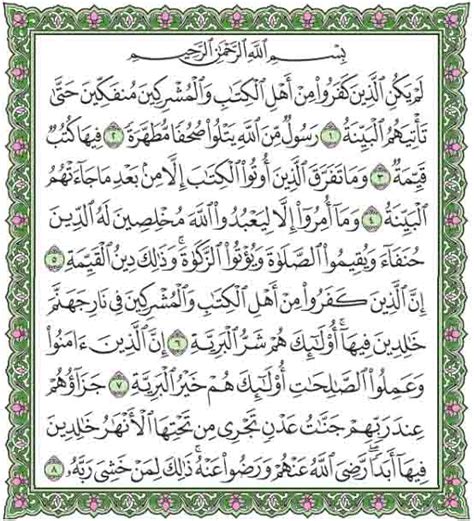 بِسْمِ ٱللَّهِ ٱلرَّحْمَٰنِ ٱلرَّحِيمِ
لَمْ يَكُنِ ٱلَّذِينَ كَفَرُوا۟ مِنْ أَهْلِ ٱلْكِتَٰبِ وَٱلْمُشْرِكِينَ مُنفَكِّينَ حَتَّىٰ
تَأْتِيَهُمُ ٱلْبَيِّنَةُ ١ رَسُولٌ مِّنَ ٱللَّهِ يَتْلُوا۟ صُحُفًا مُّطَهَّرَةً ٢ فِيهَا كُتُبٌ
قَيِّمَةٌ ٣ وَمَا تَفَرَّقَ ٱلَّذِينَ أُوتُوا۟ ٱلْكِتَٰبَ إِلَّا مِنۢ بَعْدِ مَا جَآءَتْهُمُ
ٱلْبَيِّنَةُ ٤ وَمَآ أُمِرُوٓا۟ إِلَّا لِيَعْبُدُوا۟ ٱللَّهَ مُخْلِصِينَ لَهُ ٱلدِّينَ
حُنَفَآءَ وَيُقِيمُوا۟ ٱلصَّلَوٰةَ وَيُؤْتُوا۟ ٱلزَّكَوٰةَ ۚ وَذَٰلِكَ دِينُ ٱلْقَيِّمَةِ ٥
إِنَّ ٱلَّذِينَ كَفَرُوا۟ مِنْ أَهْلِ ٱلْكِتَٰبِ وَٱلْمُشْرِكِينَ فِى نَارِ جَهَنَّمَ
خَٰلِدِينَ فِيهَآ ۚ أُو۟لَٰٓئِكَ هُمْ شَرُّ ٱلْبَرِيَّةِ ٦ إِنَّ ٱلَّذِينَ ءَامَنُوا۟
وَعَمِلُوا۟ ٱلصَّٰلِحَٰتِ أُو۟لَٰٓئِكَ هُمْ خَيْرُ ٱلْبَرِيَّةِ ٧ جَزَآؤُهُمْ
عِندَ رَبِّهِمْ جَنَّٰتُ عَدْنٍ تَجْرِى مِن تَحْتِهَا ٱلْأَنْهَٰرُ خَٰلِدِينَ
فِيهَآ أَبَدًا ۖ رَّضِىَ ٱللَّهُ عَنْهُمْ وَرَضُوا۟ عَنْهُ ۚ ذَٰلِكَ لِمَنْ خَشِىَ رَبَّهُۥ ٨